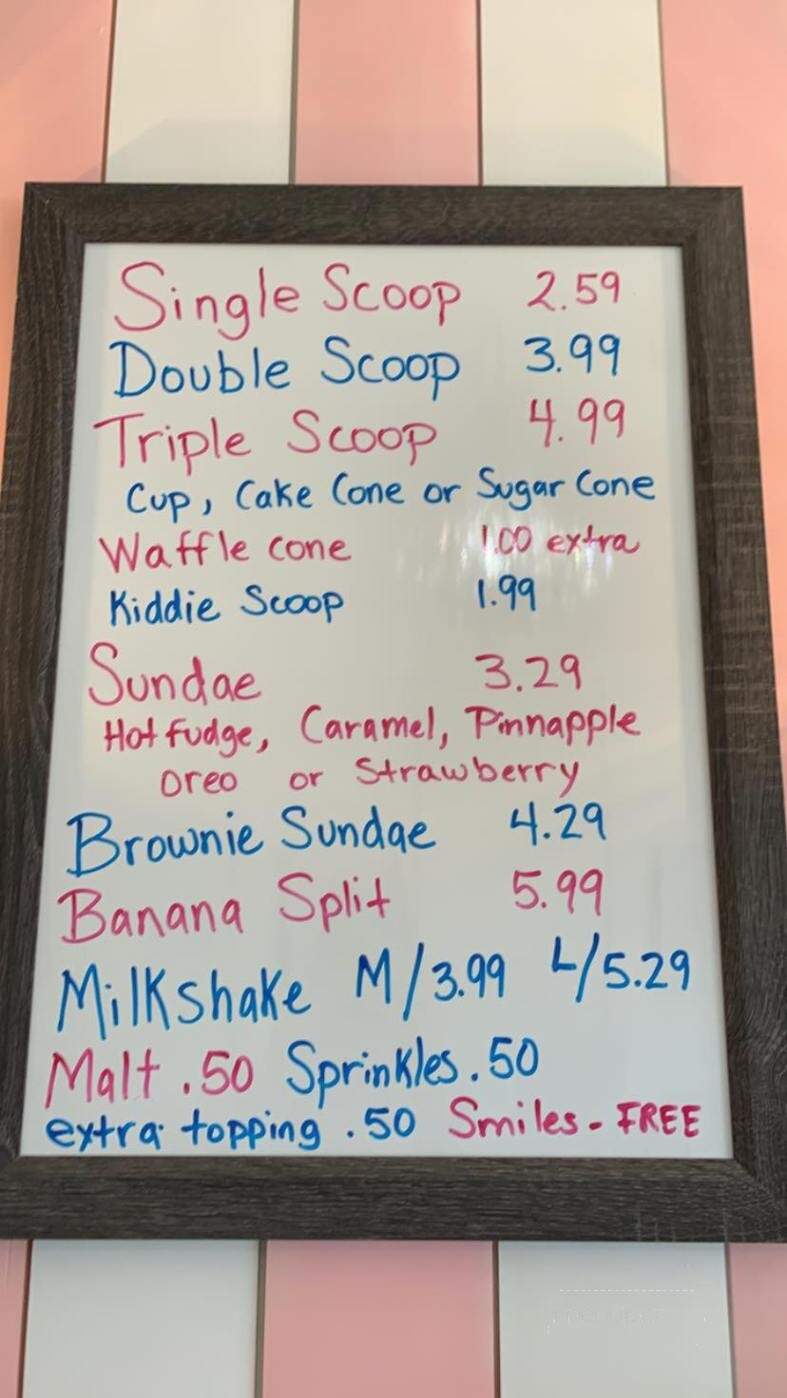 Single Scoop 2.59
Double Scoop 3.99
Triple Scoop 4.99
Cup, Cake Cone or Sugar Cone
Waffle cone 1.00 extra
Kiddie Scoop 1.99
Sundae 3.29
Hot fudge, Caramel, Pinnapple
oreo or Strawberry
Brownie Sundae 4.29
Banana Split 5.99
Milkshake M/3.99 L/5.29
Malt .50 Sprinkles .50
extra topping .50 Smiles - FREE